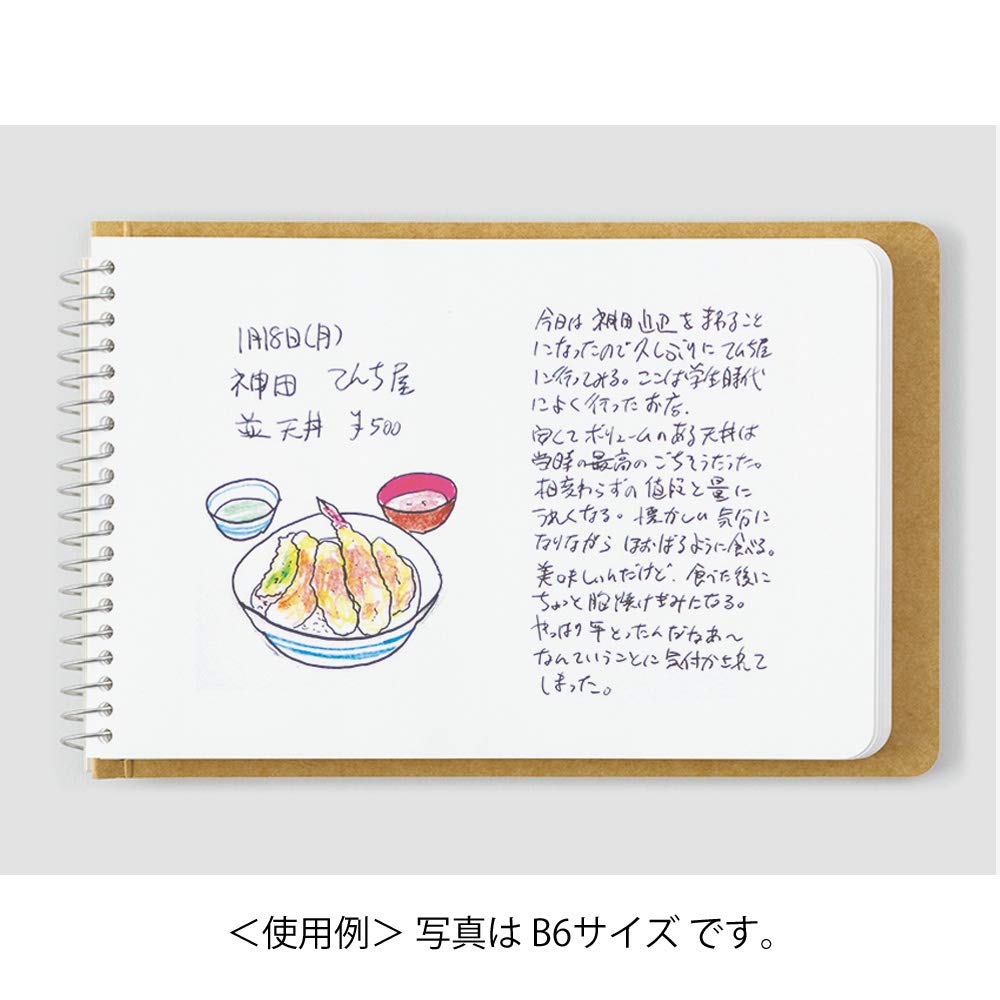 1月18日(月)
神田 てんち屋
並 天丼 ¥500
今日は 神田 辺 を まわること
になったので 久しぶりに てんち屋
に行ってみる。ここは学生時代
によく 行った お店.
安くて ボリュームのある天丼は
当時の最高の ごちそうだった。
相変わらずの 値段と量に
うれしくなる。懐かしい 気分に
なりながら ほおばるように食べる。
美味しいんだけど、食べた後に
ちょっと 胸焼けぎみになる。
やっぱり 年とったんだなあ〜
なんていうことに 気付かされて
しまった。
＜使用例＞ 写真は B6サイズ です。